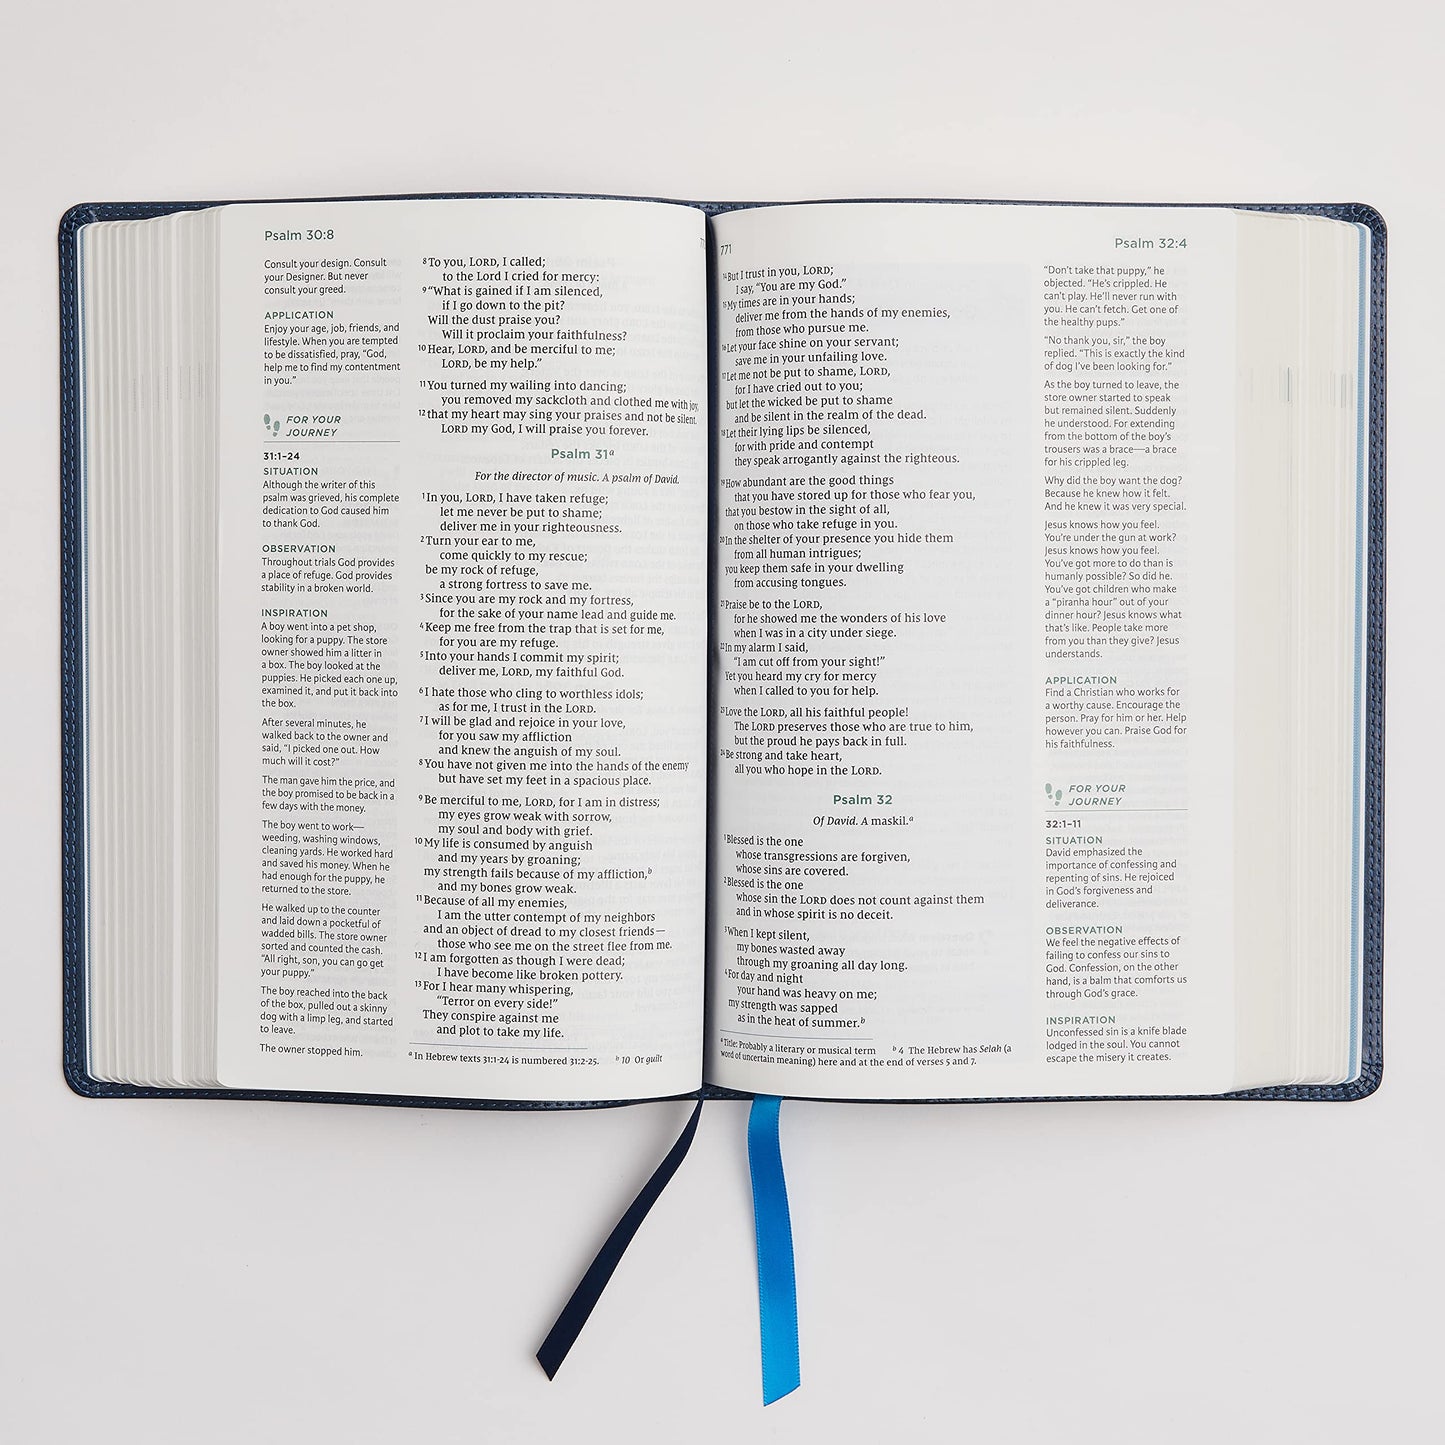 Psalm 30:8
Consult your design. Consult
your Designer. But never
consult your greed.
APPLICATION
Enjoy your age, job, friends, and
lifestyle. When you are tempted
to be dissatisfied, pray, “God,
help me to find my contentment
in you.”
FOR YOUR
JOURNEY
31:1–24
SITUATION
Although the writer of this
psalm was grieved, his complete
dedication to God caused him
to thank God.
OBSERVATION
Throughout trials God provides
a place of refuge. God provides
stability in a broken world.
INSPIRATION
A boy went into a pet shop,
looking for a puppy. The store
owner showed him a litter in
a box. The boy looked at the
puppies. He picked each one up,
examined it, and put it back into
the box.
After several minutes, he
walked back to the owner and
said, “I picked one out. How
much will it cost?”
The man gave him the price, and
the boy promised to be back in a
few days with the money.
The boy went to work—
weeding, washing windows,
cleaning yards. He worked hard
and saved his money. When he
had enough for the puppy, he
returned to the store.
He walked up to the counter
and laid down a pocketful of
wadded bills. The store owner
sorted and counted the cash.
“All right, son, you can go get
your puppy.”
The boy reached into the back
of the box, pulled out a skinny
dog with a limp leg, and started
to leave.
The owner stopped him.
8 To you, LORD, I called;
to the Lord I cried for mercy:
9 “What is gained if I am silenced,
if I go down to the pit?
Will the dust praise you?
Will it proclaim your faithfulness?
10 Hear, LORD, and be merciful to me;
LORD, be my help.”
11 You turned my wailing into dancing;
you removed my sackcloth and clothed me with joy,
12 that my heart may sing your praises and not be silent.
LORD my God, I will praise you forever.
Psalm 31a
For the director of music. A psalm of David.
1 In you, LORD, I have taken refuge;
let me never be put to shame;
deliver me in your righteousness.
2 Turn your ear to me,
come quickly to my rescue;
be my rock of refuge,
a strong fortress to save me.
3 Since you are my rock and my fortress,
for the sake of your name lead and guide me.
4 Keep me free from the trap that is set for me,
for you are my refuge.
5 Into your hands I commit my spirit;
deliver me, LORD, my faithful God.
6 I hate those who cling to worthless idols;
as for me, I trust in the LORD.
7 I will be glad and rejoice in your love,
for you saw my affliction
and knew the anguish of my soul.
8 You have not given me into the hands of the enemy
but have set my feet in a spacious place.
9 Be merciful to me, LORD, for I am in distress;
my eyes grow weak with sorrow,
my soul and body with grief.
10 My life is consumed by anguish
and my years by groaning;
my strength fails because of my affliction,b
and my bones grow weak.
11 Because of all my enemies,
I am the utter contempt of my neighbors
and an object of dread to my closest friends—
those who see me on the street flee from me.
12 I am forgotten as though I were dead;
I have become like broken pottery.
13 For I hear many whispering,
“Terror on every side!”
They conspire against me
and plot to take my life.
a In Hebrew texts 31:1-24 is numbered 31:2-25. b 10 Or guilt
771
14 But I trust in you, LORD;
I say, “You are my God.”
15 My times are in your hands;
deliver me from the hands of my enemies,
from those who pursue me.
16 Let your face shine on your servant;
save me in your unfailing love.
17 Let me not be put to shame, LORD,
for I have cried out to you;
but let the wicked be put to shame
and be silent in the realm of the dead.
18 Let their lying lips be silenced,
for with pride and contempt
they speak arrogantly against the righteous.
19 How abundant are the good things
that you have stored up for those who fear you,
that you bestow in the sight of all,
on those who take refuge in you.
20 In the shelter of your presence you hide them
from all human intrigues;
you keep them safe in your dwelling
from accusing tongues.
21 Praise be to the LORD,
for he showed me the wonders of his love
when I was in a city under siege.
22 In my alarm I said,
“I am cut off from your sight!”
Yet you heard my cry for mercy
when I called to you for help.
23 Love the LORD, all his faithful people!
The LORD preserves those who are true to him,
but the proud he pays back in full.
24 Be strong and take heart,
all you who hope in the LORD.
Psalm 32
Of David. A maskil.a
1 Blessed is the one
whose transgressions are forgiven,
whose sins are covered.
2 Blessed is the one
whose sin the LORD does not count against them
and in whose spirit is no deceit.
3 When I kept silent,
my bones wasted away
through my groaning all day long.
4 For day and night
your hand was heavy on me;
my strength was sapped
as in the heat of summer.b
a Title: Probably a literary or musical term b 4 The Hebrew has Selah (a
word of uncertain meaning) here and at the end of verses 5 and 7.
Psalm 32:4
“Don’t take that puppy,” he
objected. “He’s crippled. He
can’t play. He’ll never run with
you. He can’t fetch. Get one of
the healthy pups.”
“No thank you, sir,” the boy
replied. “This is exactly the kind
of dog I’ve been looking for.”
As the boy turned to leave, the
store owner started to speak
but remained silent. Suddenly
he understood. For extending
from the bottom of the boy’s
trousers was a brace—a brace
for his crippled leg.
Why did the boy want the dog?
Because he knew how it felt.
And he knew it was very special.
Jesus knows how you feel.
You’re under the gun at work?
Jesus knows how you feel.
You’ve got more to do than is
humanly possible? So did he.
You’ve got children who make
a “piranha hour” out of your
dinner hour? Jesus knows what
that’s like. People take more
from you than they give? Jesus
understands.
APPLICATION
Find a Christian who works for
a worthy cause. Encourage the
person. Pray for him or her. Help
however you can. Praise God for
his faithfulness.
FOR YOUR
JOURNEY
32:1–11
SITUATION
David emphasized the
importance of confessing and
repenting of sins. He rejoiced
in God’s forgiveness and
deliverance.
OBSERVATION
We feel the negative effects of
failing to confess our sins to
God. Confession, on the other
hand, is a balm that comforts us
through God’s grace.
INSPIRATION
Unconfessed sin is a knife blade
lodged in the soul. You cannot
escape the misery it creates.